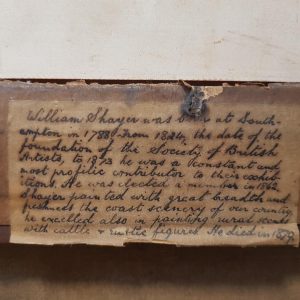 William Shayer was b r at South-
ampton in 1788. From 1824, the date of the
foundation of the Society of British
Artists, to 1873 he was a constant and
most prolific contributor to their exhib-
itions. He was elected a member in 1862.
Shayer painted with great breadth and
freshness the coast scenery of our country,
he excelled also in painting rural scenes
with cattle & rustic figures. He died in